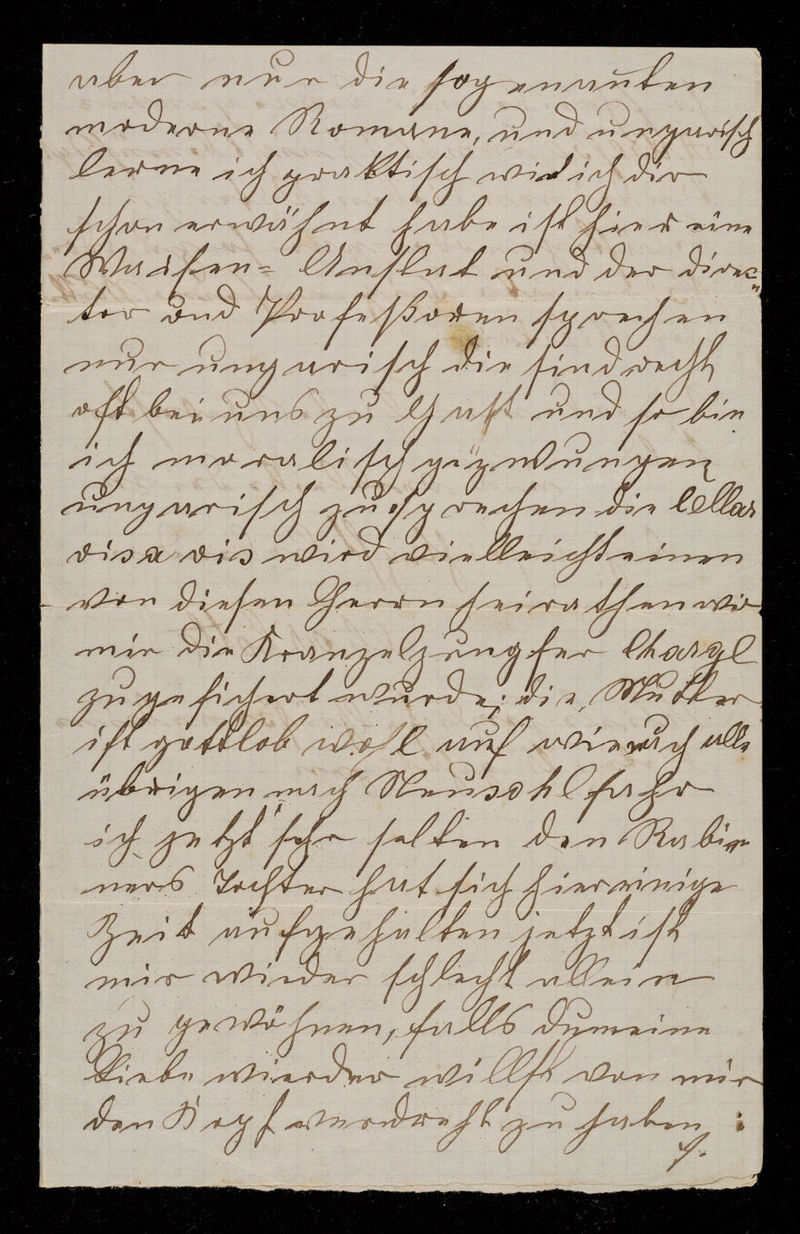 aber nur die sogenanten
moderne Romane, und ungarisch
lerne ich praktisch wie ich dir
schon erwähnt habe ist hier eine
Waisen= Anstat und der direc=
tor und Profeßoren sprechen
nur ungarisch die sind recht
oft bei uns zu Gast und so bin
ich moralisch gezwungen
ungarisch zu sprechen die
visa vis wird vielleicht einen
von diesen Herrn heirathen wo
mir die Kranzeljungfer
zugesichert wurde; die Mutter
ist gottlob wohl auf wie auch alle
übrigen nach Neusohl fahr
ich jetzt sehr selten den Rabi
ners Tochter hat sich hier einige
Zeit aufgehalten jetzt ist
mir wieder schlecht allein
zu gewöhnen, falls du meine
Liebe wierder willst von mir
den Kopf verdreht zu haben